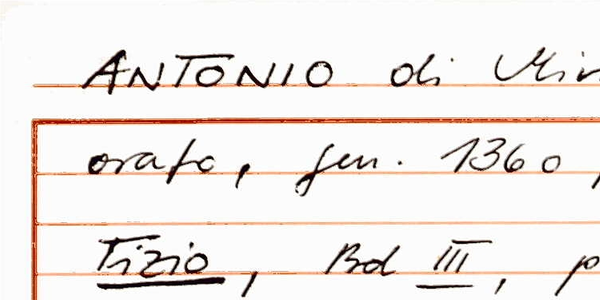 ANTONIO di
orafo, gen. 1360,
Tizio, Bd III, p